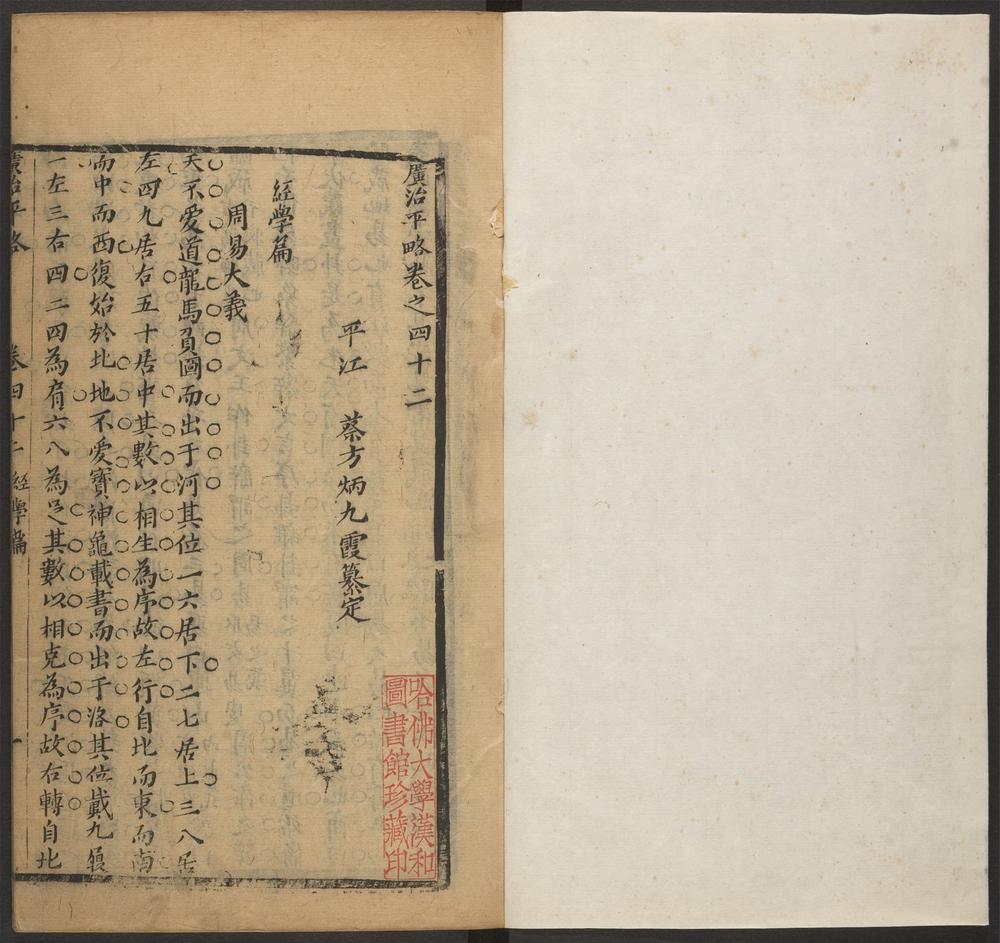 廣治平略卷之四十二
平江 蔡方炳九霞纂定
經學篇
周易大義
天不愛道龍馬負圖而出于河其位一六居下二七居上三八居
左四九居右五十居中其數以相生為序故左行自北而東而南
而中而西復始於北地不愛寶神龜載書而出于洛其位戴九履
一左三右四二四為肩六八為足其數以相克為序故右轉自北
廣治平略 卷四十二 經學篇 一
哈佛大學漢和
圖書館珍藏印